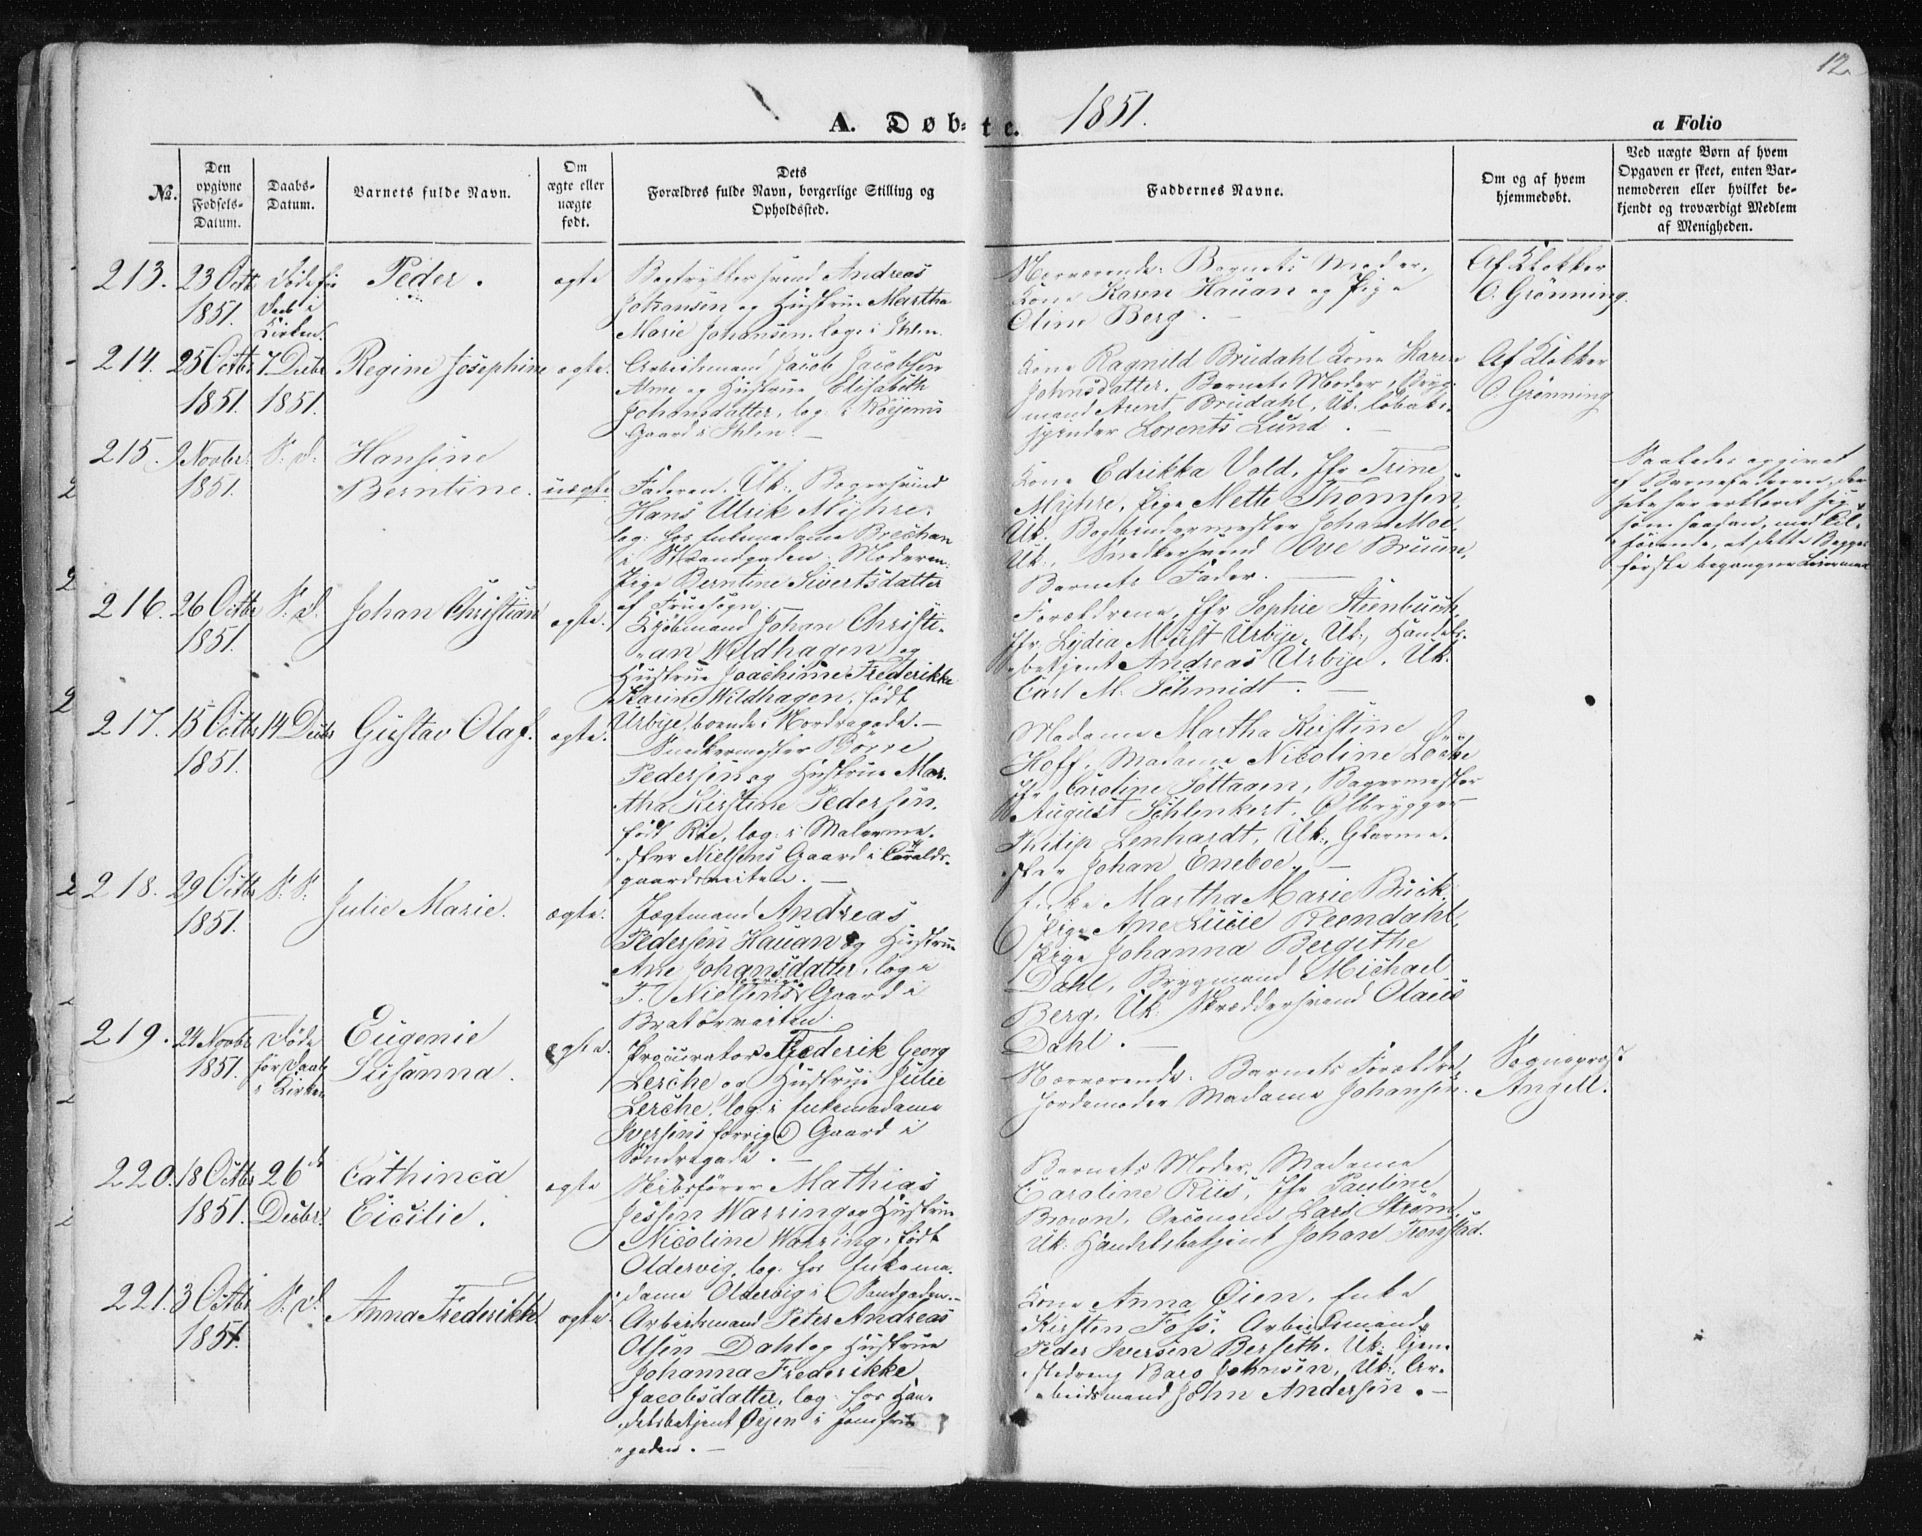 12
A. Døb-te. 1851.
a Folio
No.
Den opgivne Fødsels-Datum.
Daabs-Datum.
Barnets fulde Navn.
Om ægte eller uægte født.
Dets Forældres fulde Navn, borgerlige Stilling og Opholdssted.
Faddernes Navne.
Om og af hvem hjemmedøbt.
Ved uægte Børn af hvem Opgaven er skeet, enten Barnemoderen eller hvilket bekjendt og troværdigt Medlem af Menigheden.
213. 23 Octbr 1851. Døde før Daab i Kirken.
Peder.
ægte
Andreas
Johansen og Hustrue Martha
Marie Johansen, log: i Ihlen.
Nærværende: Barnets Moder,
Kone Karen Hauan og Pige
Oline Berg.
Af Klokker
O. Grønning.
214. 25 Octbr 1851. 7 Decbr 1851.
Regine Josephine
ægte.
Arbeidsmand Jacob Jacobsen
Alme og Hustrue Elisabeth
Johansdatter, log: i
Gaard i Ihlen.
Kone Ragnild Brudahl, Kone Karen
Johnsdatter, Barnets Moder, Bryg-
mand Arent Brudahl, Uk. Tobaks-
spinder Lorents Lund.
Af Klokker
O. Grønning
215. 9 Novbr. 1851. S. D.
Hansine
Berntine.
uægte
Faderen, Uk: Bogersvend
Hans Ulrik Myhre,
log: hos Enkemadame Brechan
i Strandgaden. Moderen
Pige Berntine Sivertsdatter
af Fruesogn.
Kone Edrikka Vold, Jfr Trine
Myhre, Pige Mette Thomsen,
Uk. Bogbindermester Johan Moe,
Uk., Snedkersvend Ove Bruun,
Barnets Fader.
Saaledes opgivet
af Barnefaderen, der
har erklæret sig
som saadan, med Til-
førende, at dette Begges
første begangne Leiermaal
216. 26 Octbr 1851. S. D.
Johan Christian
ægte.
Kjøbmand Johan Christi-
an Wildhagen og
Hustrue Joachime Frederikke
Karine Wildhagen, født
Urbye, boende i Nordregade.
Forældrene, Jfr Sophie Steinbuch,
Jfr Lydia Must Urbye, Uk., Handels-
betjent Andreas Urbye, Uk.
Carl M. Schmidt.
217. 15 Octbr 1851. 14 Decbr
Gustav Olaf.
ægte.
Snedkermester Børre
Pedersen og Hustrue Mar-
tha Kirstine Pedersen,
født Roe, log: i Malerme-
ster Nielsens Gaard i
gaardsveiten.
Madame Martha Kirstine
Hoff, Madame Nicoline Løche
Jfr Caroline Sottaaen, Bagermester
August Schlenkert, Ølbrygger
Philip Lenhardt, Uk., Glarme-
ster Johan Eneboe.
218. 29 Octbr 1851. S. D.
Julie Marie.
ægte.
Jægtmand Andreas
Pedersen Hauan og Hustrue
Ane Johansdatter, log i
T. Nielsens Gaard i
Bratørveiten.
Enke Martha Marie Buck,
Pige Ane Lucie Reendahl,
Pige Johanna Bergithe
Dahl, Brygmand Michael
Berg, Uk. Skræddersvend Olaus
Dahl.
219. 24 Novbr 1851. Døde før Daab i Kirken
Eugenie
Susanna.
ægte.
Procurator Frederik Georg
Lerche og Hustrue Julie
Lerche, log: i Enkemadame
Iversens forrige Gaard i
Søndregade.
Nærværende: Barnets Forældre,
Jordemoder Madame Johansen.
Sogneprest
Angell.
220. 18 Octbr 1851. 26de Decbr.
Cathinca
Cicilie.
ægte
Skibsfører Mathias
Jessen Warring og Hustrue
Nicoline Warring, født
Oldervig, log: hos Enkema-
dame Oldervig i Sandgaden.
Barnets Moder, Madame
Caroline Riis, Jfr Pauline
Brown, Oeconom Lars Strøm,
Uk: Handelsbetjent Johan Tronstad.
221. 3 Octbr 1851. S. D.
Anna Frederikke
ægte.
Arbeidsmand Peter Andreas
Olsen Dahl og Hustrue
Johanna Frederikke
Jacobsdatter, log: hos Han-
delsbetjent Øyen i Jomfrue-
gaden.
Kone Anna Øien, Enke
Kirsten Foss, Arbeidsmand
Peder Iversen Berseth, Uk: Tjene-
stedreng Baro Johnsen, Uk: Ar-
beidsmand John Andersen.